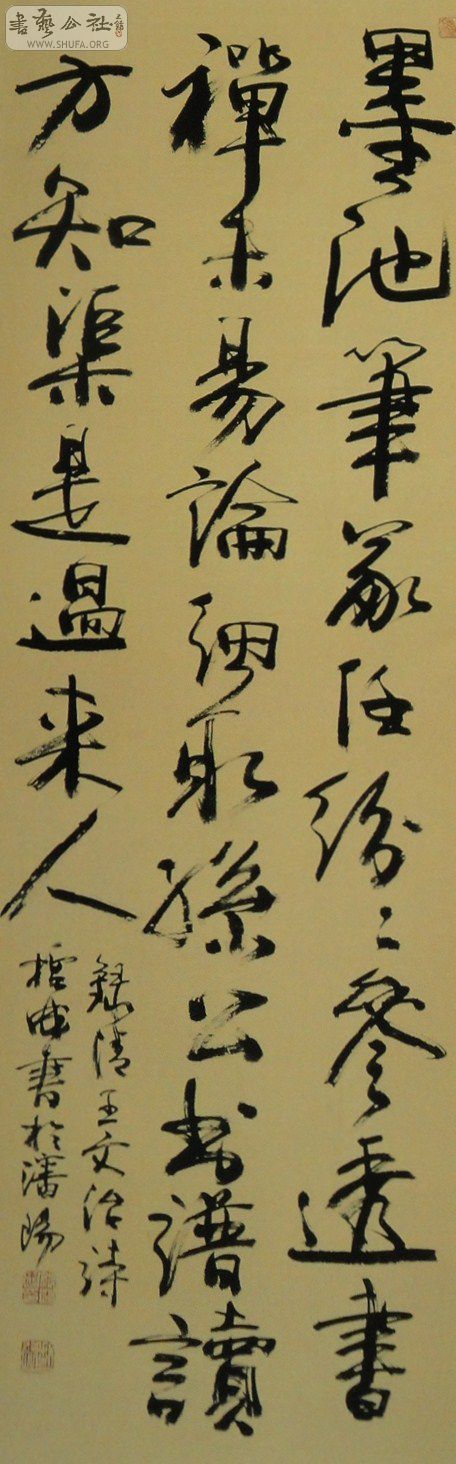 書藝公社
WWW.SHUFA.ORG
墨池筆冢任紛〻參透書
禪未易論細取孫公書譜讀
方知渠是過来人
錄清王文治詩
書於瀋陽